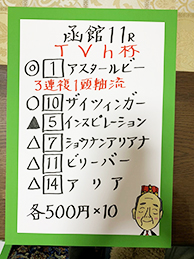 函館11R
TVh杯
◎1アスタールビー
3連複1頭軸流
○10ザイツィンガー
▲5インスピレーション
△7ショウナンアリアナ
△11ビリーバー
△14アリア
各500円×10